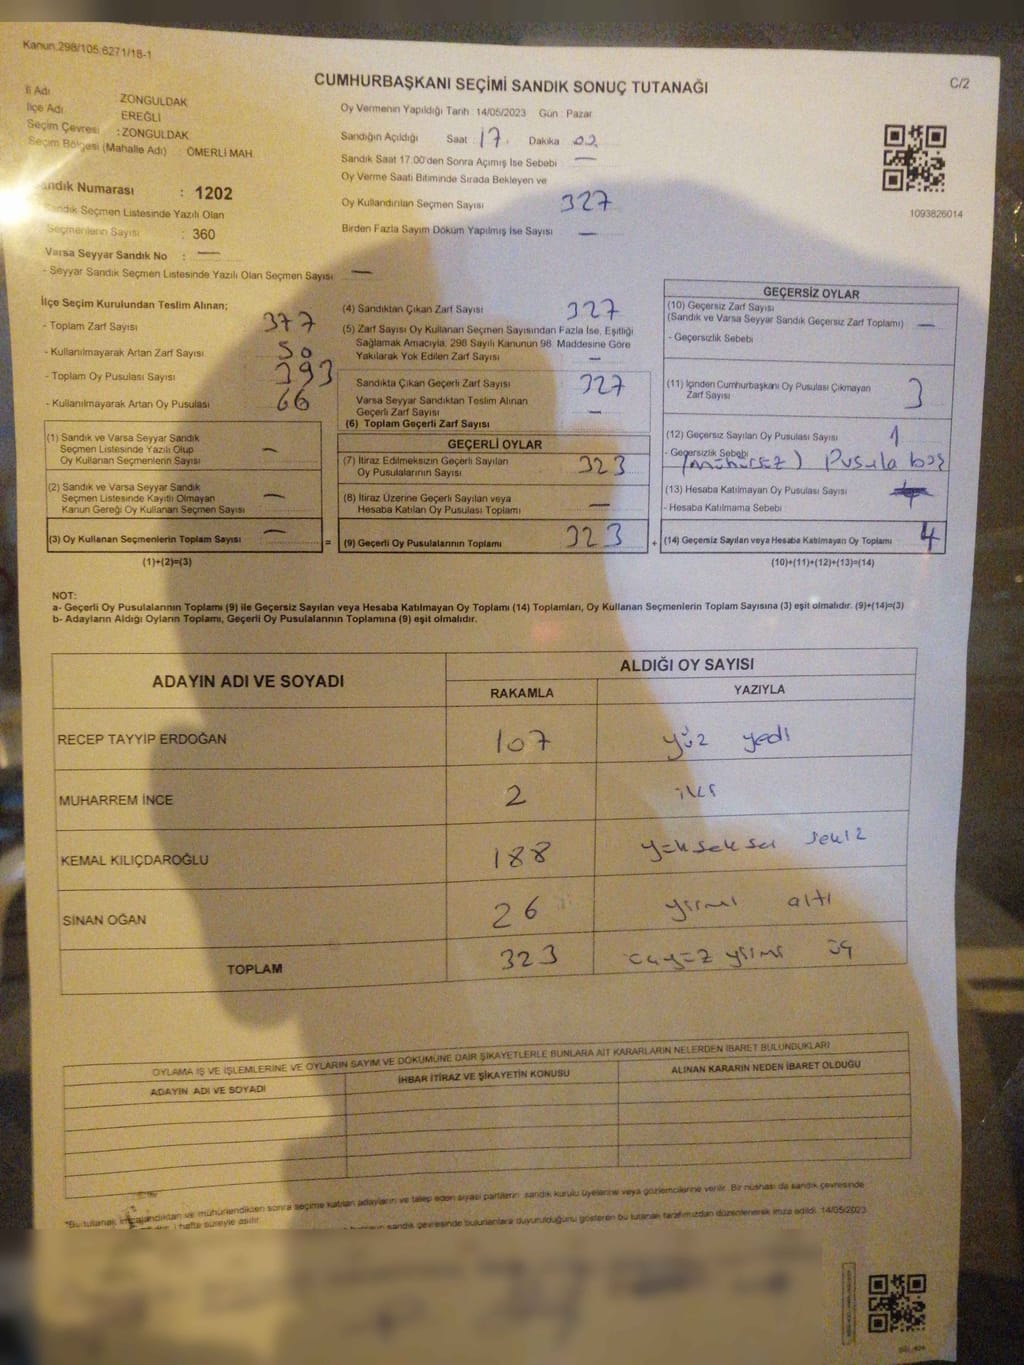 Kanun:298/105:6271/18-1
CUMHURBAŞKANI SEÇİMİ SANDIK SONUÇ TUTANAĞI
C/2
İl Adı ZONGULDAK
İlçe Adı EREĞLİ
Seçim Çevresi : ZONGULDAK
Seçim Bölgesi (Mahalle Adı) ÖMERLİ MAH
Sandık Numarası : 1202
Sandık Seçmen Listesinde Yazılı Olan
Seçmenlerin Sayısı : 360
Varsa Seyyar Sandık No : —
- Seyyar Sandık Seçmen Listesinde Yazılı Olan Seçmen Sayısı —
Oy Vermenin Yapıldığı Tarih : 14/05/2023 Gün : Pazar
Sandığın Açıldığı Saat : 17. Dakika 02
Sandık Saat 17.00'den Sonra Açımış İse Sebebi —
Oy Verme Saati Bitiminde Sırada Bekleyen ve
Oy Kullandırılan Seçmen Sayısı 327
Birden Fazla Sayım Döküm Yapılmış İse Sayısı —
1093826014
İlçe Seçim Kurulundan Teslim Alınan;
- Toplam Zarf Sayısı 377
- Kullanılmayarak Artan Zarf Sayısı 50
- Toplam Oy Pusulası Sayısı 393
- Kullanılmayarak Artan Oy Pusulası 66
(1) Sandık ve Varsa Seyyar Sandık
Seçmen Listesinde Yazılı Olup
Oy Kullanan Seçmenlerin Sayısı —
(2) Sandık ve Varsa Seyyar Sandık
Seçmen Listesinde Kayıtlı Olmayan
Kanun Gereği Oy Kullanan Seçmen Sayısı —
(3) Oy Kullanan Seçmenlerin Toplam Sayısı — =
(1)+(2)=(3)
(4) Sandıktan Çıkan Zarf Sayısı 327
(5) Zarf Sayısı Oy Kullanan Seçmen Sayısından Fazla İse, Eşitliği
Sağlamak Amacıyla, 298 Sayılı Kanunun 98. Maddesine Göre
Yakılarak Yok Edilen Zarf Sayısı —
Sandıkta Çıkan Geçerli Zarf Sayısı 327
Varsa Seyyar Sandıktan Teslim Alınan
Geçerli Zarf Sayısı —
(6) Toplam Geçerli Zarf Sayısı
GEÇERLİ OYLAR
(7) İtiraz Edilmeksizin Geçerli Sayılan
Oy Pusulalarının Sayısı 323
(8) İtiraz Üzerine Geçerli Sayılan veya
Hesaba Katılan Oy Pusulası Toplamı —
(9) Geçerli Oy Pusulalarının Toplamı 323 +
GEÇERSİZ OYLAR
(10) Geçersiz Zarf Sayısı
(Sandık ve Varsa Seyyar Sandık Geçersiz Zarf Toplamı) —
- Geçersizlik Sebebi
(11) İçinden Cumhurbaşkanı Oy Pusulası Çıkmayan
Zarf Sayısı 3
(12) Geçersiz Sayılan Oy Pusulası Sayısı 1
- Geçersizlik Sebebi (mühürsüz) Pusula boş
(13) Hesaba Katılmayan Oy Pusulası Sayısı
- Hesaba Katılmama Sebebi
(14) Geçersiz Sayılan veya Hesaba Katılmayan Oy Toplamı 4
(10)+(11)+(12)+(13)=(14)
NOT:
a- Geçerli Oy Pusulalarının Toplamı (9) ile Geçersiz Sayılan veya Hesaba Katılmayan Oy Toplamı (14) Toplamları, Oy Kullanan Seçmenlerin Toplam Sayısına (3) eşit olmalıdır. (9)+(14)=(3)
b- Adayların Aldığı Oyların Toplamı, Geçerli Oy Pusulalarının Toplamına (9) eşit olmalıdır.
ADAYIN ADI VE SOYADI
ALDIĞI OY SAYISI
RAKAMLA YAZIYLA
RECEP TAYYİP ERDOĞAN 107 yüz yedi
MUHARREM İNCE 2 iki
KEMAL KILIÇDAROĞLU 188 yükseksen sekiz
SİNAN OĞAN 26 yirmi altı
TOPLAM 323 üçyüz yirmi üç
OYLAMA İŞ VE İŞLEMLERİNE VE OYLARIN SAYIM VE DÖKÜMÜNE DAİR ŞİKAYETLERLE BUNLARA AİT KARARLARIN NELERDEN İBARET BULUNDUKLARI
ADAYIN ADI VE SOYADI
İHBAR İTİRAZ VE ŞİKAYETİN KONUSU
ALINAN KARARIN NEDEN İBARET OLDUĞU
*Bu tutanak imzalandıktan ve mühürlendikten sonra seçime katılan adayların ve talep eden siyasi partilerin sandık kurulu üyelerine veya gözlemcilerine verilir. Bir nüshası da sandık çevresinde
hafta süreyle asılır.
sandık çevresinde bulunanlara duyurulduğunu gösteren bu tutanak tarafımızdan düzenlenerek imza edildi. 14/05/2023